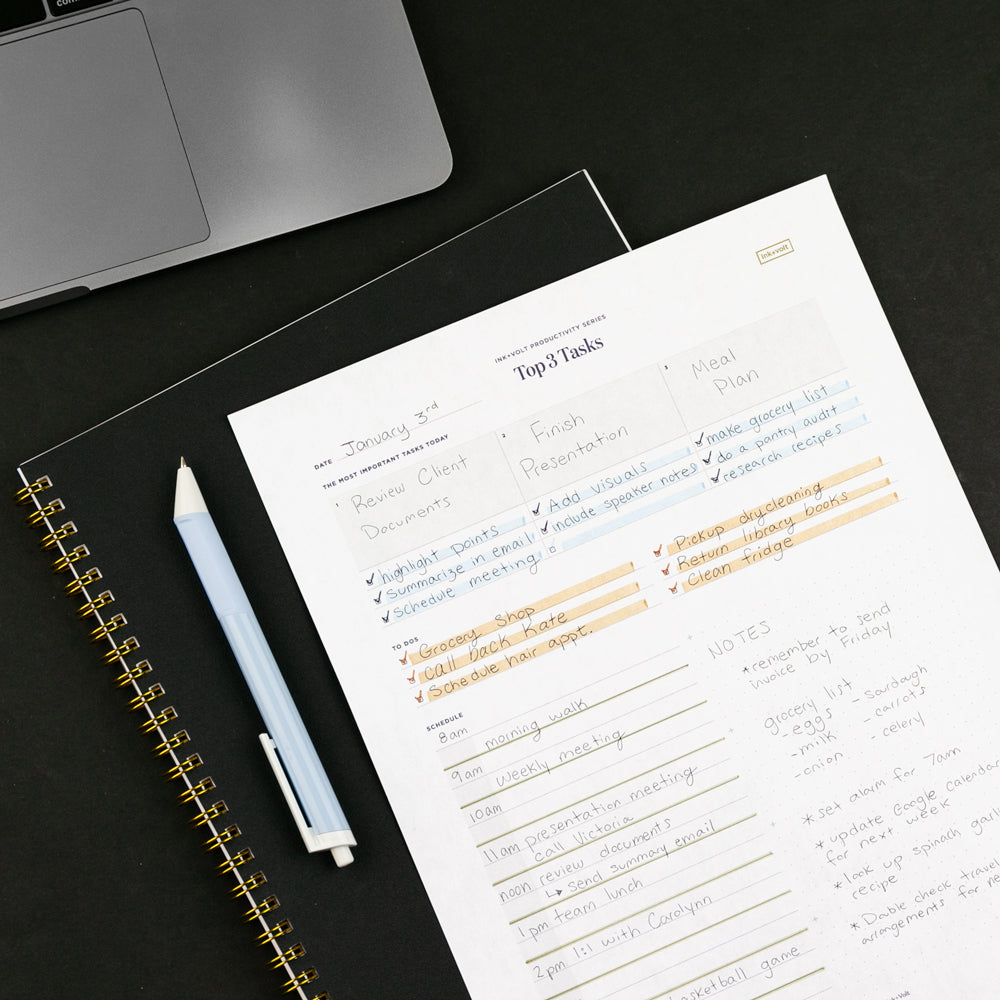 ink+volt
INK+VOLT PRODUCTIVITY SERIES
Top 3 Tasks
DATE January 3rd
THE MOST IMPORTANT TASKS TODAY
1 Review Client
Documents
highlight points
Summarize in email
Schedule meeting
2 Finish
Presentation
Add visuals
include speaker notes
3 Meal
Plan
make grocery list
do a pantry audit
research recipes
TO DOS
Grocery Shop
Call back Kate
Schedule hair appt.
Pickup drycleaning
Return library books
Clean fridge
SCHEDULE
8am morning walk
9am weekly meeting
10am
11am presentation meeting
call Victoria
noon review documents
↳ send summary email
1pm team lunch
2pm 1:1 with Carolynn
basketball game
NOTES
*remember to send
invoice by Friday
grocery list
-eggs - Sourdough
-milk - carrots
-onion - celery
* set alarm for 7am
* update Google calendar
for next week
* look up spinach
recipe
* Double check travel
arrangements for